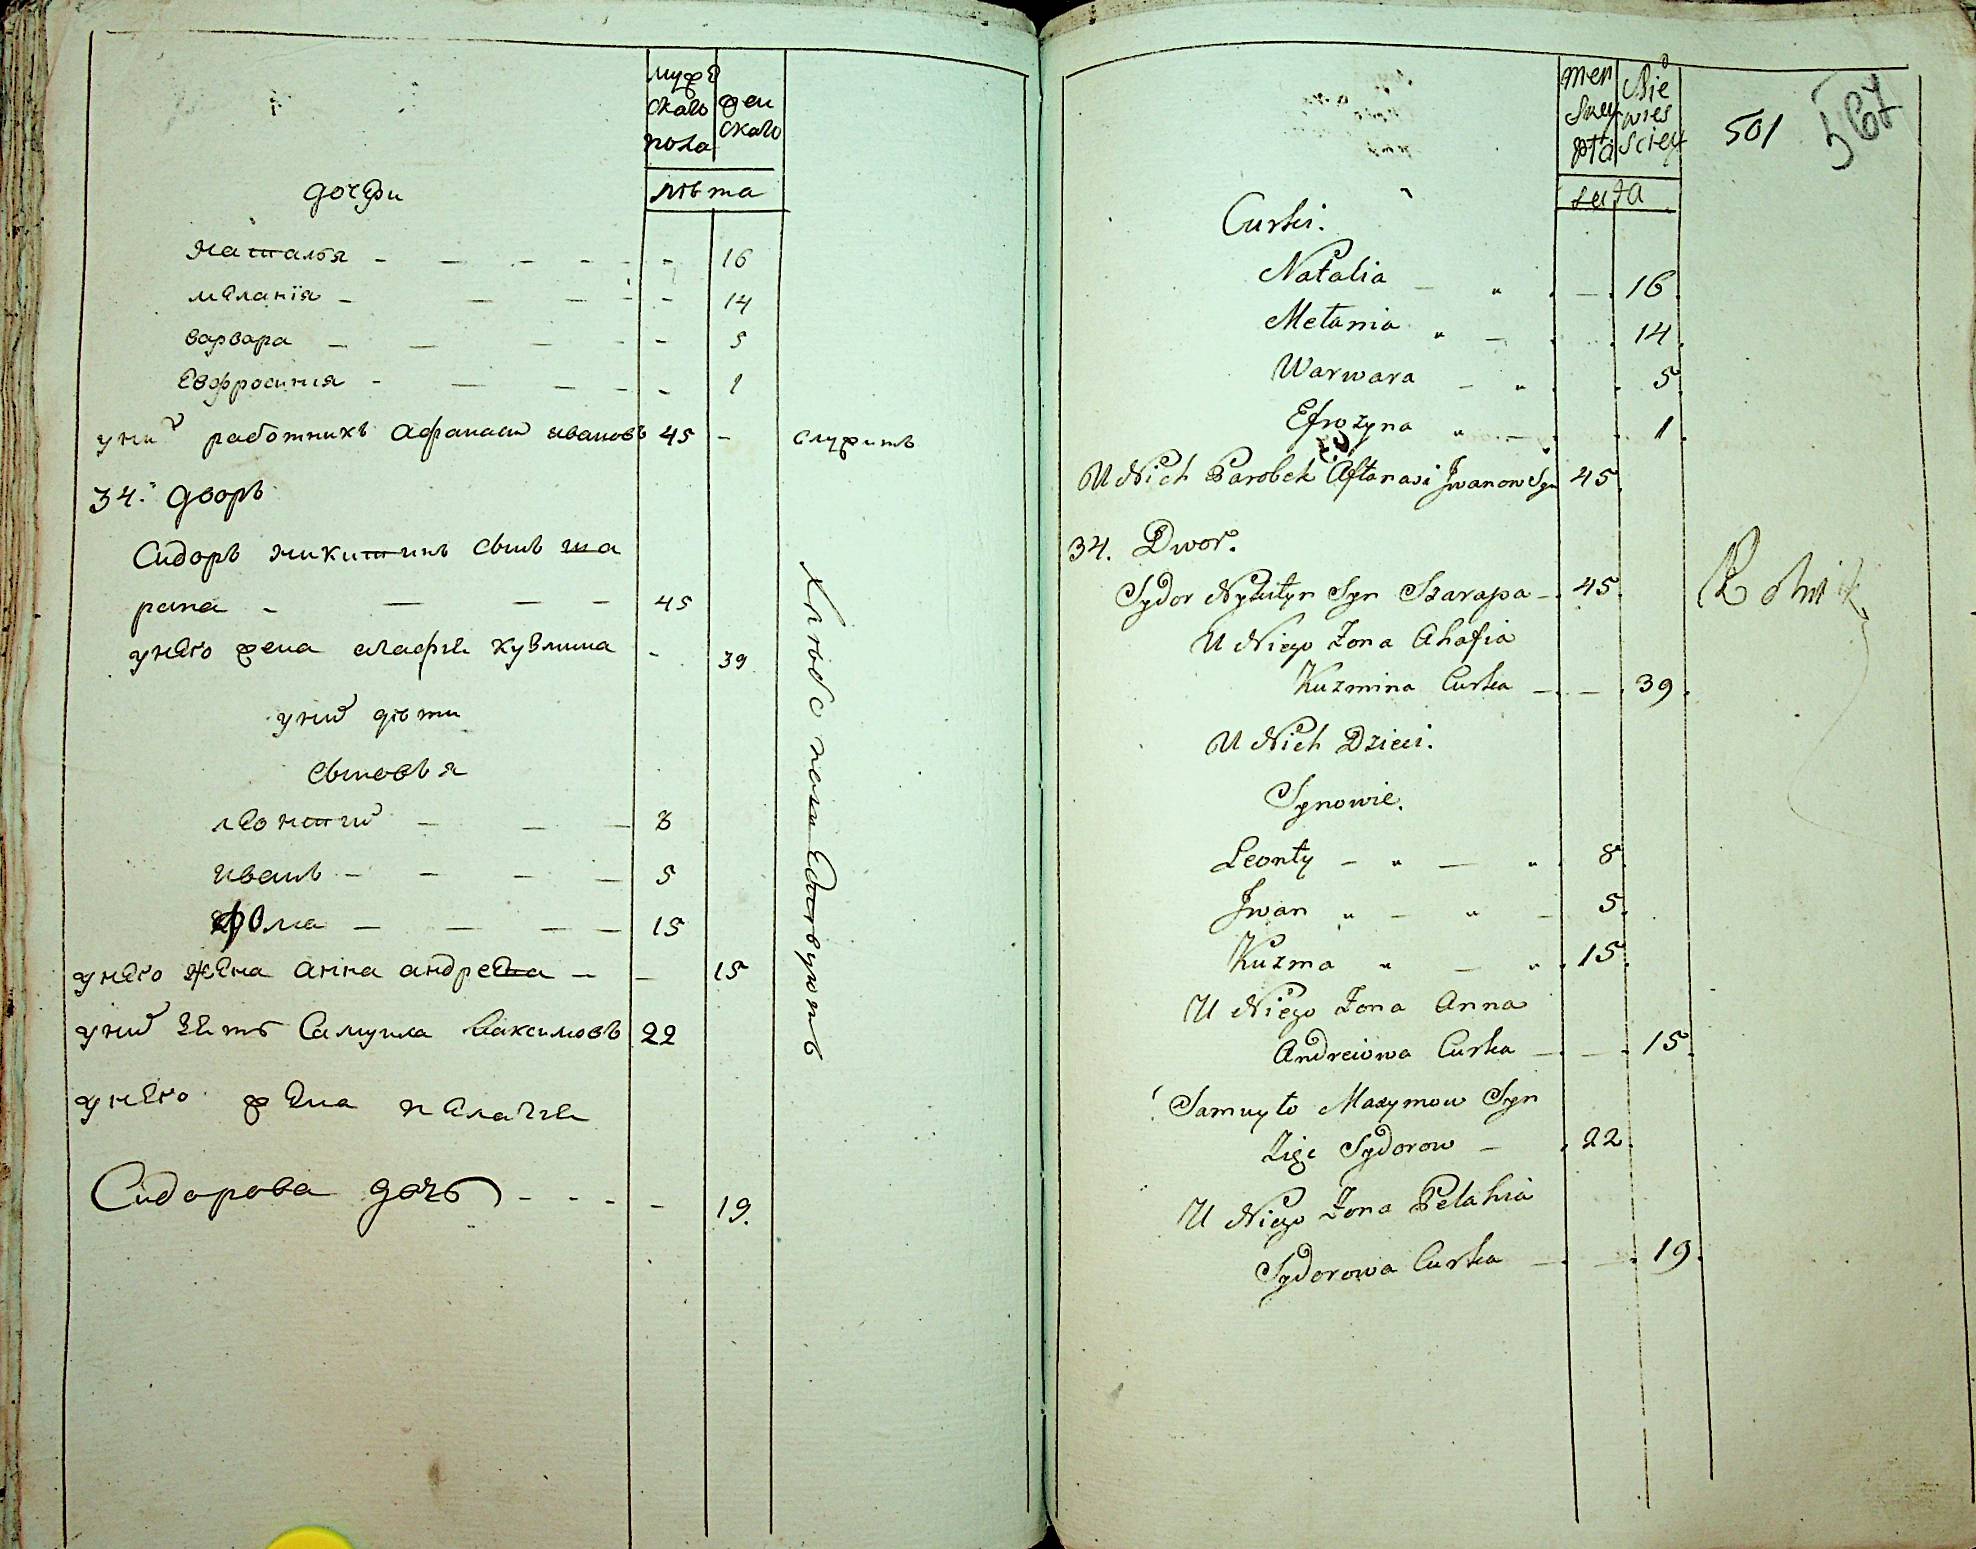 мужеска̂го пола
женскаго
лѣта
дочери
наталья - - - - - 16
меланія - - - - - 14
варвара - - - - - 5
Евфросинія - - - - - 1
у них работникъ афанаси ивановъ 45 - служитъ
34. дворъ
Сидоръ никитинъ сынъ ша
рапа - - - - 45
у него жена агафия кузмина - 39
у них дѣти
сыновья
леонтий - - - 8
иванъ - - - - 5
фома - - - - 15
у него жена анна андреева - - 15
у них зять Самуила Максимовъ 22
у него жена пелагия
Сидорова дочь - - - - 19.
хлѣбопашествуютъ
Men
skey
płci
Nie
wies
ciey
501
567
Lata
Curki.
Natalia 16.
Mełania 14.
Warwara 5.
Efrozyna 1.
U Nich Parobek Aftanasi Jwanow Syn 45.
34. Dwor.
Sydor Nykityn Syn Szarapa 45. Rolnik
U Niego Żona Ahafia
Kuzmina Curka 39.
U Nich Dzieci.
Synowie.
Leonty 8.
Jwan 5.
Kuzma 15.
U Niego Żona Anna
Andreiowa Curka 15.
Samuyło Maxymow Syn
Zięć Sydorow 22.
U Niego Żona Pelahia
Sydorowa Curka 19.